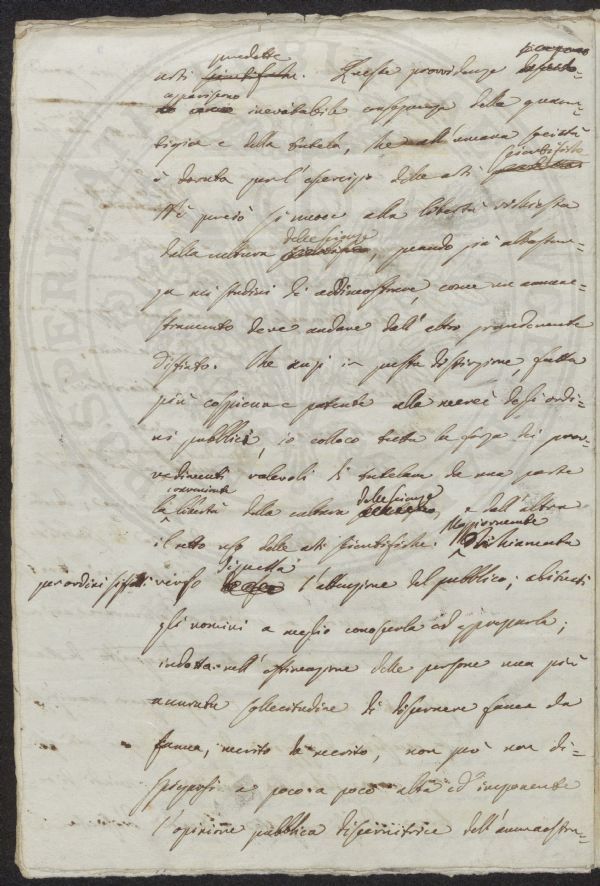 predette
arti scientifiche. Queste provvidenze
appariscono
inevitabile conseguenza della guaren-
tigia e della tutela, che all'umana società
scientifiche
è dovuta per l'esercizio delle arti
Nè perciò si nuoce alla libertà richiesta
delle scienze
dalla cultura, quando già abbastan-
za mi studiai di addimostrare, come un ammae-
stramento deve andare dall'altro grandemente
distinto. Che anzi in questa distinzione fatta
più cospicua e patente alla mercè degli ordi-
ni pubblici, io colloco tutta la forza dei prov-
vedimenti valevoli di tutelare da una parte
conveniente
la libertà della cultura delle scienze, e dall'altra
Maggiormente
il retto uso delle arti scientifiche. Richiamata
per ordini siffatti verso di quella l'attenzione del pubblico; abituati
gli uomini a meglio conoscerla ed apprezzarla;
indotta nell'estimazione delle persone una più
accurata sollecitudine di discernere fama da
fama, merito da merito, non può non di-
spiegarsi a poco a poco alta ed imponente
l'opinione pubblica discernitrice dell'ammaestra-